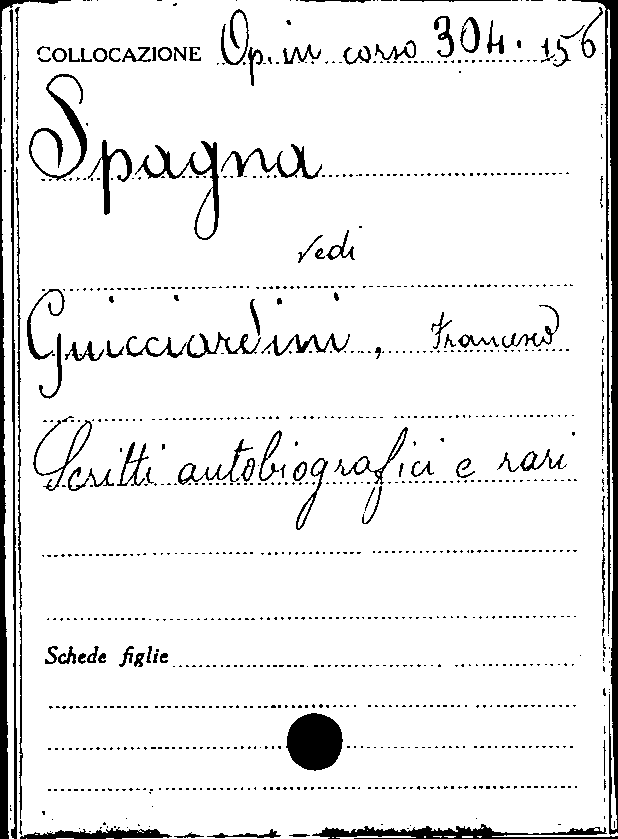 COLLOCAZIONE Op. in corso 304. 156
Spagna
vedi
Guicciardini, Francesco
Scritti autobiografici e rari
Schede figlie